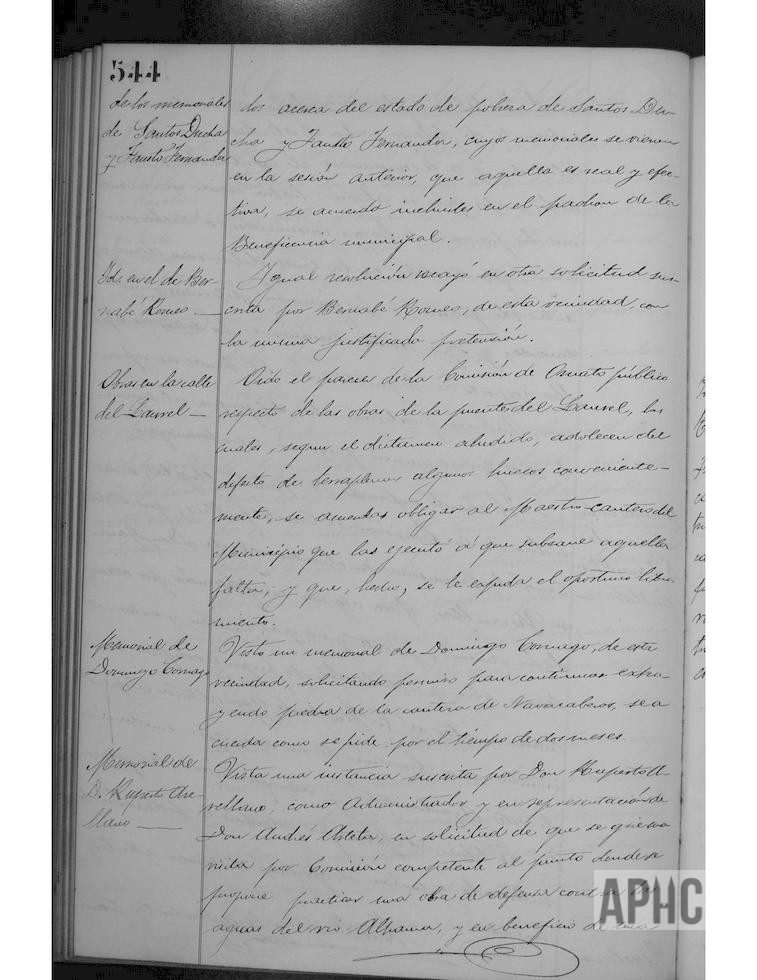 544
de los memoriales
de Santos Ducha
y Fausto Fernandez
dos acerca del estado de pobreza de Santos Du-
cha y Fausto Fernandez, cuyos memoriales se vieron
en la sesión anterior, que aquella es real y efec-
tiva, se acuerda incluirles en el padron de la
Beneficencia municipal.
Id. en el de Ber-
nabé Romeo
Igual resolución recayó en otra solicitud sus-
crita por Bernabé Romeo, de esta vecindad, con
la misma justificada pretensión.
Obras en la calle
del Laurel
Oido el parecer de la Comisión de Ornato público
respecto de las obras de la puente del Laurel, las
cuales, segun el dictamen aludido, adolecen del
defecto de terraplenar algunos huecos conveniente-
mente, se acuerda obligar al Maestro-cantero del
Municipio que las ejecutó á que subsane aquella
falta; y que, hecho, se le expida el oportuno libra-
miento.
Memorial de
Domingo Cornago
Visto un memorial de Domingo Cornago, de esta
vecindad, solicitando permiso para continuar extra-
yendo piedra de la cantera de se a
cuerda como se pide por el tiempo de dos meses.
Memorial de
D. Ruperto Are-
llano
Vista una instancia suscrita por Don Ruperto A-
rellano, como Administrador y en representación de
Don Andrés Arteta, en solicitud de que se gire una
visita por Comisión competente al punto donde se
propone practicar una obra de defensa contra las
aguas del rio Alhama, y en beneficio de una
APHC